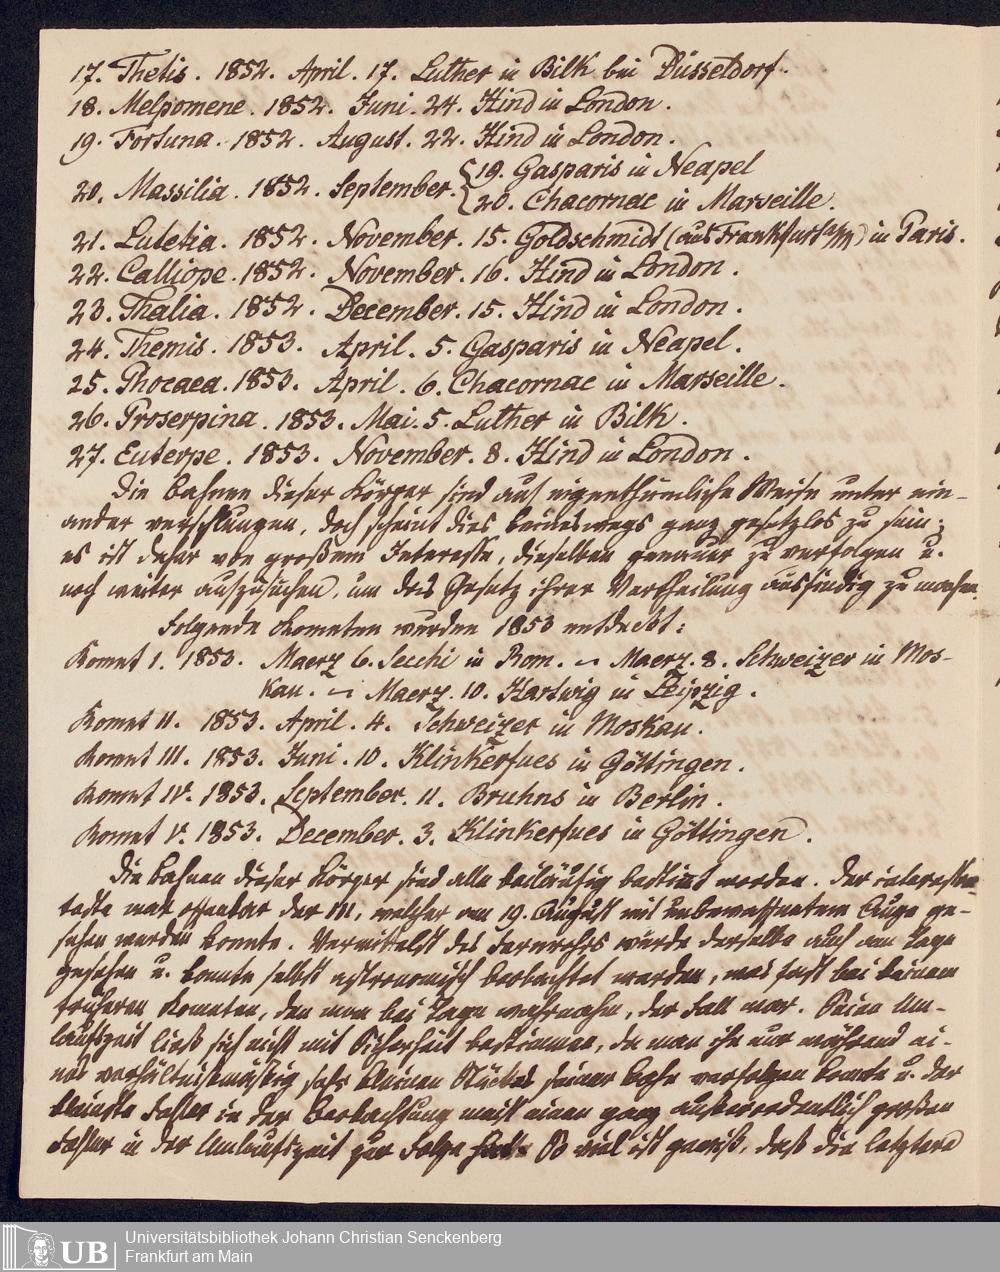 17. Thetis. 1852. April. 17. Luther in Bilk bei Düsseldorf.
18. Melpomene. 1852. Juni. 24. Hind in London.
19. Fortuna. 1852. August. 22. Hind in London.
20. Massilia. 1852. September. {19. Gasparis in Neapel
20. Chacornac in Marseille.
21. Lutetia. 1852. November. 15. Goldschmidt (aus Frankfurt a/M) in Paris.
22. Calliope. 1852. November. 16. Hind in London.
23. Thalia. 1852. December. 15. Hind in London.
24. Themis. 1853. April. 5. Gasparis in Neapel.
25. Phocaea. 1853. April. 6. Chacornac in Marseille.
26. Proserpina. 1853. Mai. 5. Luther in Bilk.
27. Euterpe. 1853. November. 8. Hind in London.
Die Bahnen dieser Körper sind auf eigenthümliche Weise unter ein-
ander verschlungen, doch scheint dies keineswegs ganz gesetzlos zu sein;
es ist daher von großem Interesse, dieselben genauer zu verfolgen u.
noch weiter aufzusuchen, um das Gesetz ihrer Vertheilung ausfindig zu machen.
Folgende Kometen wurden 1853 entdeckt:
Komet I. 1853. Maerz 6. Secchi in Rom. – Maerz. 8. Schweizer in Mos-
kau. – Maerz. 10. Hartwig in Leipzig.
Komet II. 1853. April. 4. Schweizer in Moskau.
Komet III. 1853. Juni. 10. Klinkerfues in Göttingen.
Komet IV. 1853. September. 11. Bruhns in Berlin.
Komet V. 1853. December. 3. Klinkerfues in Göttingen.
Die Bahnen dieser Körper sind alle beiläufig bestimt worden. Der interessan-
teste war offenbar der III, welcher am 19. August mit unbewaffnetem Auge ge-
sehen werden konnte. Vermittelst des Fernrohrs wurde derselbe auch am Tage
gesehen u. konnte selbst astronomisch beobachtet werden, was fast bei keinem
früheren Kometen, den man bei Tage wahrnahm, der Fall war. Seine Um-
laufszeit ließ sich nicht mit Sicherheit bestimmen, da man ihn nur während ei-
nes verhältnißmäßig sehr kleinen Stückes seiner Bahn verfolgen konnte u. der
kleinste Fehler in der Beobachtung meist einen ganz außerordentlich großen
Fehler in der Umlaufszeit zur Folge hat. So viel ist gewiß, daß die letztere
Universitätsbibliothek Johann Christian Senckenberg
Frankfurt am Main
UB